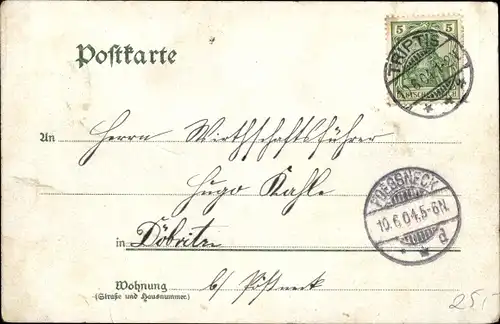 5 5
TRIPTIS
Postkarte
An Herrn Wirthschaftsführer
Hugo Kahle
POESSNECK
10.6.04.5-6N.
d
in Döbritz
Wohnung b/ Pößneck
(Straße und Hausnummer.)
25,-